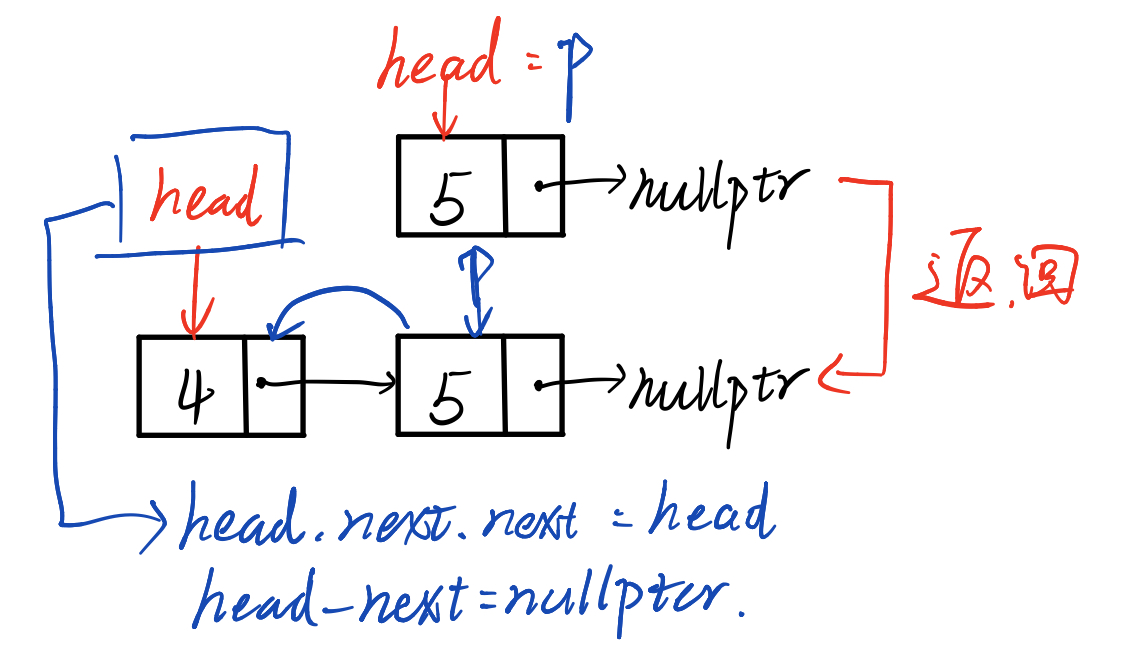 head = p
5 nullptr
head
返回
p
4 5 nullptr
head.next.next = head
head-next=nullpter.